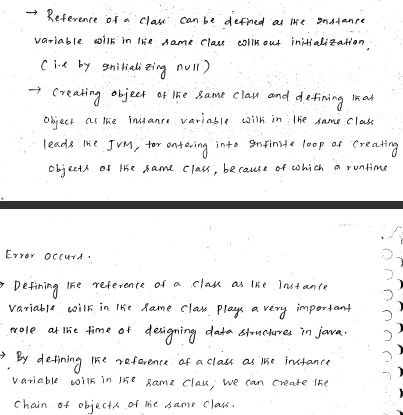 → Reference of a class can be defined as the instance
variable with in the same class without initialization,
(i.e by initializing null)
→ Creating object of the same class and defining that
object as the instance variable with in the same class
leads the JVM, for entering into infinite loop of creating
objects of the same class, because of which a runtime
Error occurs.
→ Defining the reference of a class as the instance
variable with in the same class plays a very important
role at the time of designing data structures in java.
→ By defining the reference of a class as the instance
variable with in the same class, we can create the
chain of objects of the same class.